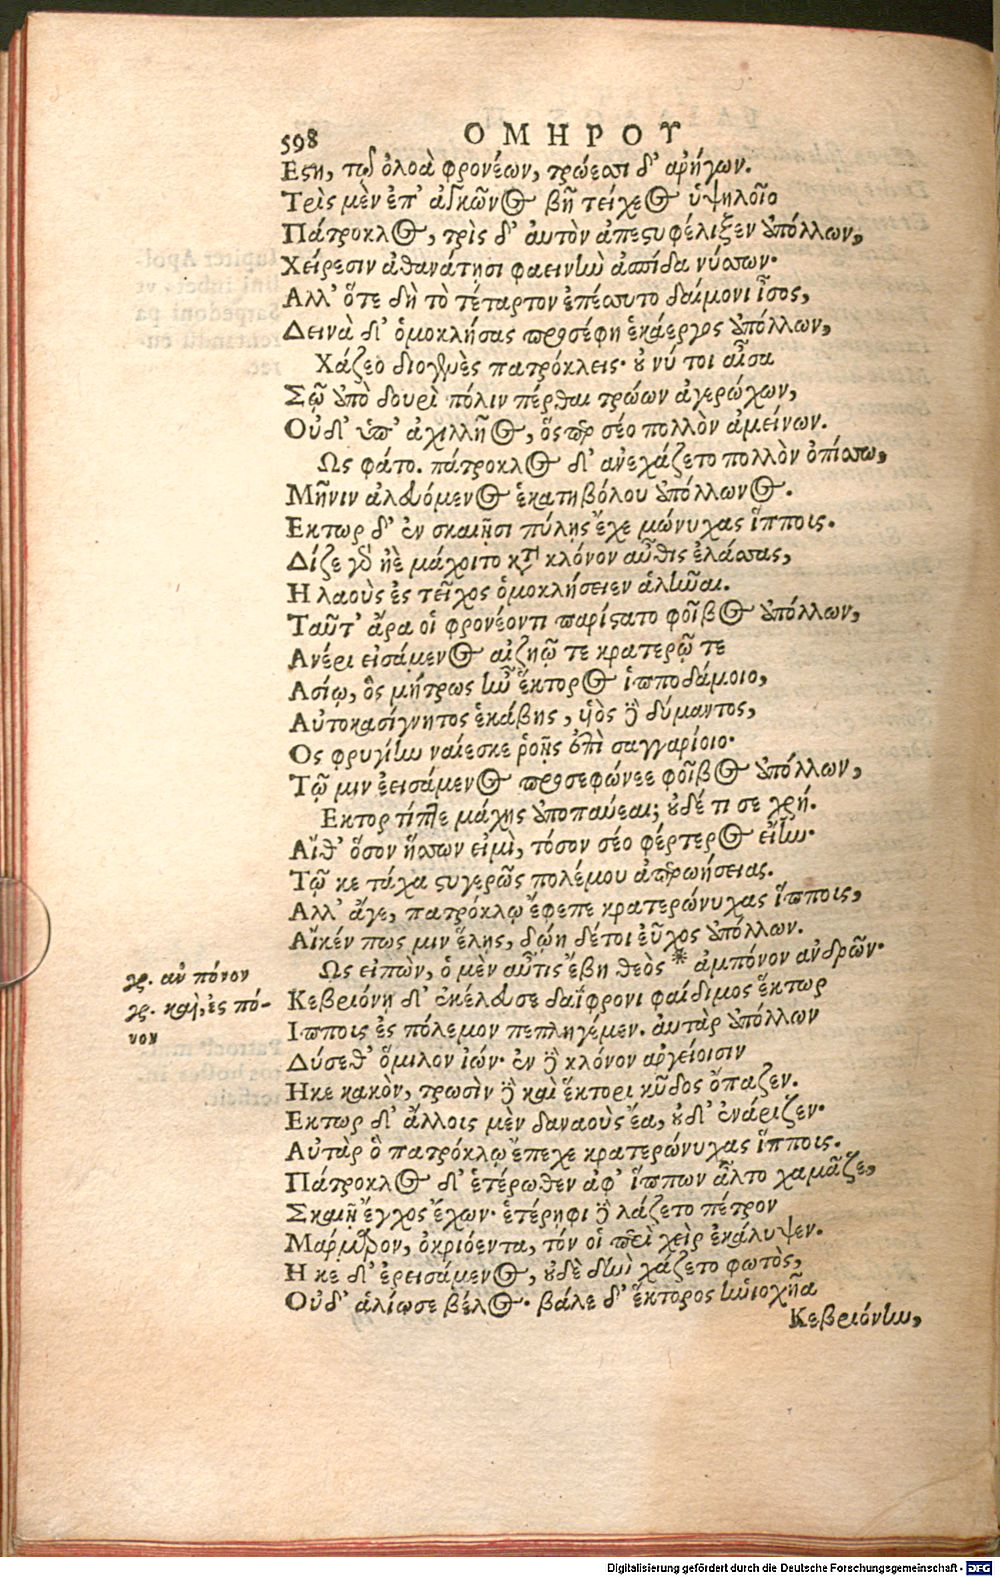 598 ΟΜΗΡΟΥ
Εστη, τῷ ὀλοὰ φρονέων, τρώεσσι δ' ἀρήγων.
Τρὶς μὲν ἐπ' ἀγκῶνος βῆ τείχεος ὑψηλοῖο
Πάτροκλος, τρὶς δ' αὐτὸν ἀπεστυφέλιξεν ἀπόλλων,
Χείρεσιν ἀθανάτησι φαεινὴν ἀσπίδα νύσσων·
Αλλ' ὅτε δὴ τὸ τέταρτον ἐπέσσυτο δαίμονι ἶσος,
Δεινὰ δ' ὁμοκλήσας προσέφη ἑκάεργος ἀπόλλων,
Χάζεο διογενὲς πατρόκλεις· οὔ νύ τοι αἶσα
Σῷ ὑπὸ δουρὶ πόλιν πέρθαι τρώων ἀγερώχων,
Οὐδ' ὑπ' ἀχιλλῆος, ὅσπερ σέο πολλὸν ἀμείνων.
Ως φάτο. πάτροκλος δ' ἀνεχάζετο πολλὸν ὀπίσσω,
Μῆνιν ἀλευόμενος ἑκατηβόλου ἀπόλλωνος.
Εκτωρ δ' ἐν σκαιῇσι πύλῃς ἔχε μώνυχας ἵππους.
Δίζε γὰρ ἠὲ μάχοιτο κατὰ κλόνον αὖθις ἐλάσσας,
Η λαοὺς ἐς τεῖχος ὁμοκλήσειεν ἁλῶναι.
Ταῦτ' ἄρα οἱ φρονέοντι παρίστατο φοῖβος ἀπόλλων,
Ανέρι εἰσάμενος αἰζηῷ τε κρατερῷ τε
Ασίῳ, ὃς μήτρως ἦν ἕκτορος ἱπποδάμοιο,
Αὐτοκασίγνητος ἑκάβης, υἱὸς δὲ δύμαντος,
Ος φρυγίην ναίεσκε ῥοῇς ἐπὶ σαγγαρίοιο·
Τῷ μιν ἐεισάμενος προσεφώνεε φοῖβος ἀπόλλων,
Εκτορ τίπτε μάχης ἀποπαύεαι; οὐδέ τι σε χρή.
Αἴθ' ὅσον ἥσσων εἰμὶ, τόσον σέο φέρτερος εἴην·
Τῷ κε τάχα στυγερῶς πολέμου ἀπερωήσειας.
Αλλ' ἄγε, πατρόκλῳ ἔφεπε κρατερώνυχας ἵππους,
Αἴκέν πως μιν ἕλῃς, δώῃ δέτοι εὖχος ἀπόλλων.
Ως εἰπὼν, ὁ μὲν αὖτις ἔβη θεὸς * ἀμπόνον ἀνδρῶν·
γρ. ἀν πόνον
Κεβριόνῃ δ' ἐκέλευσε δαΐφρονι φαίδιμος ἕκτωρ
γρ. καὶ, ἐς πό-
Ιπποις ἐς πόλεμον πεπληγέμεν. αὐτὰρ ἀπόλλων
νον
Δύσεθ' ὅμιλον ἰών· ἐν δὲ κλόνον ἀργείοισιν
Ηκε κακὸν, τρωσὶν δὲ καὶ ἕκτορι κῦδος ὄπαζεν.
Εκτωρ δ' ἄλλοις μὲν δαναοὺς ἔα, οὐδ' ἐνάριζεν·
Αὐτὰρ ὃ πατρόκλῳ ἔπεχε κρατερώνυχας ἵππους.
Πάτροκλος δ' ἑτέρωθεν ἀφ' ἵππων ἆλτο χαμᾶζε,
Σκαιῇ ἔγχος ἔχων· ἑτέρηφι δὲ λάζετο πέτρον
Μάρμαρον, ὀκριόεντα, τόν οἱ περὶ χεὶρ ἐκάλυψεν.
Η κε δ' ἐρεισάμενος, οὐδὲ δὴν χάζετο φωτὸς,
Οὐδ' ἁλίωσε βέλος· βάλε δ' ἕκτορος ἡνιοχῆα
Κεβριόνην,
Digitalisierung gefördert durch die Deutsche Forschungsgemeinschaft - DFG